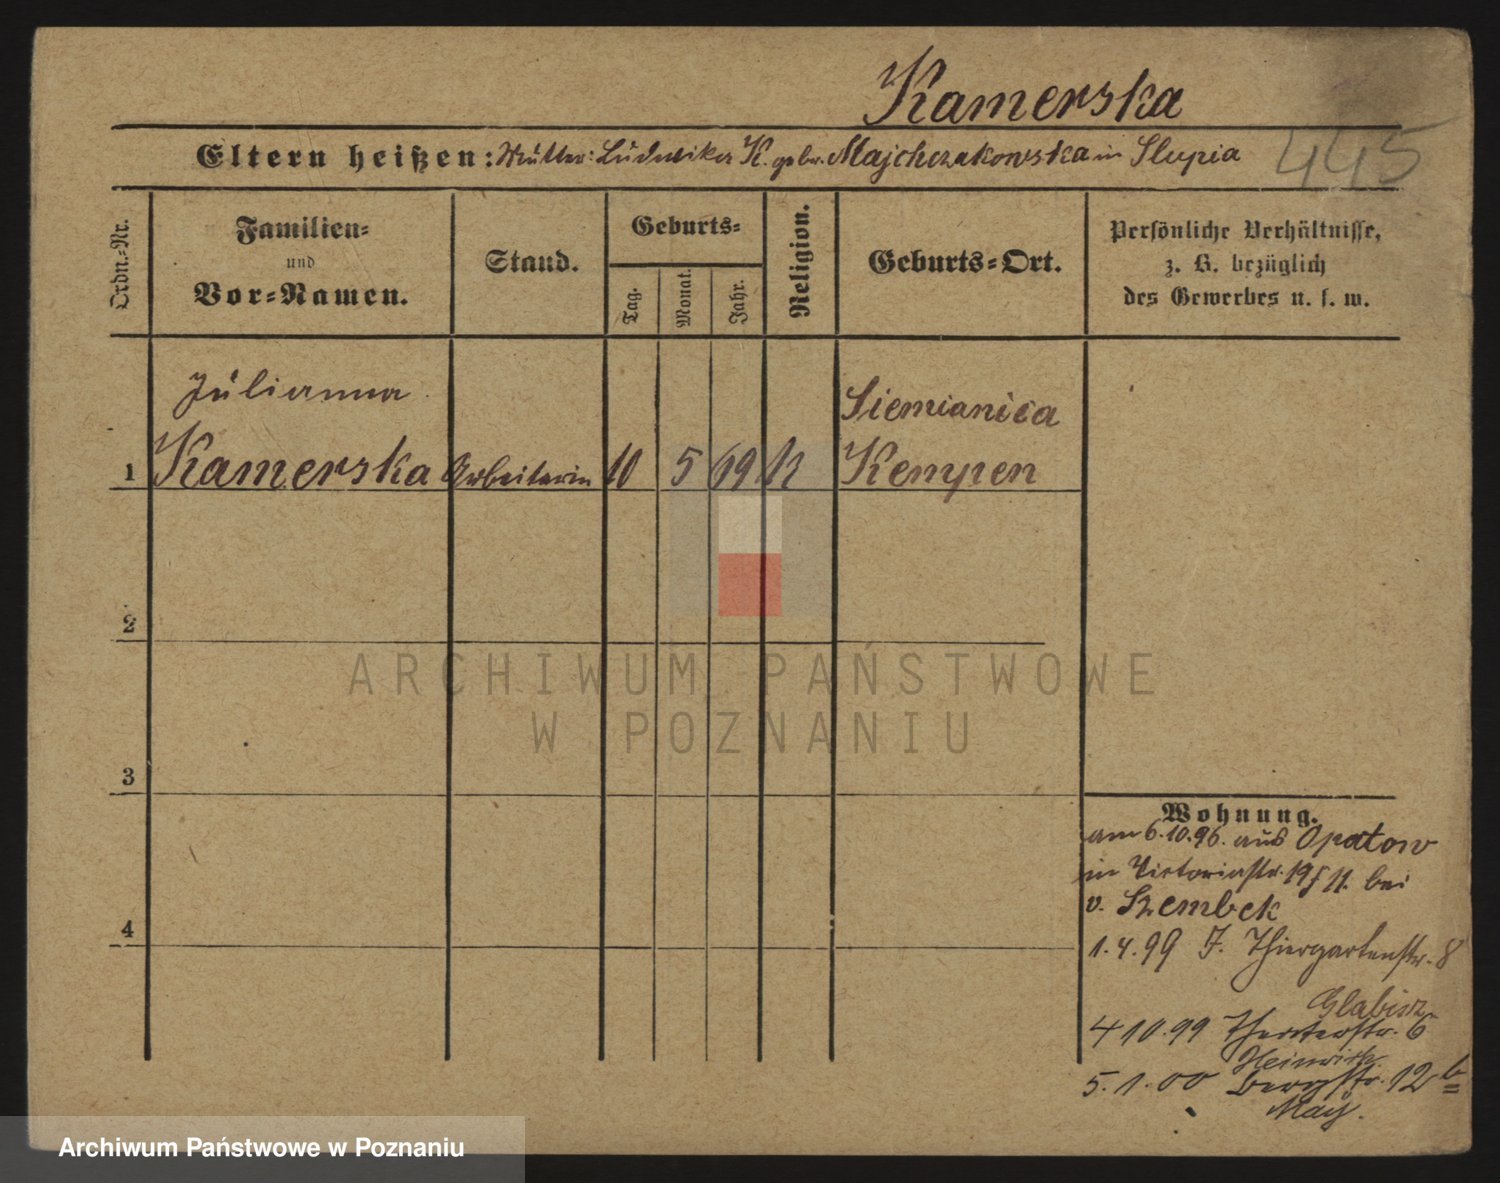 Kamerska
Eltern heißen: Mutter: Ludwika K. geb. Majchczakowska in Slupia
445
Ordn.-Nr.
Familien-
und
Vor-Namen.
Stand.
Geburts-
Tag.
Monat.
Jahr.
Religion.
Geburts-Ort.
Persönliche Verhältnisse,
z. B. bezüglich
des Gewerbes u. s. w.
Julianna Siemianica
1 Kamerska Arbeiterin 10 5 69 K Kempen
2
3
4
Wohnung.
am 6.10.96. aus Opatow
in Victoriastr. 19 II. bei
v. Szembek
1.4.99 Thiergartenstr. 8
Glabisz
4 10.99 Theaterstr. 6
Heinrich
5.1.00 Bergstr. 12 b
May.
ARCHIWUM PAŃSTWOWE
W POZNANIU
Archiwum Państwowe w Poznaniu